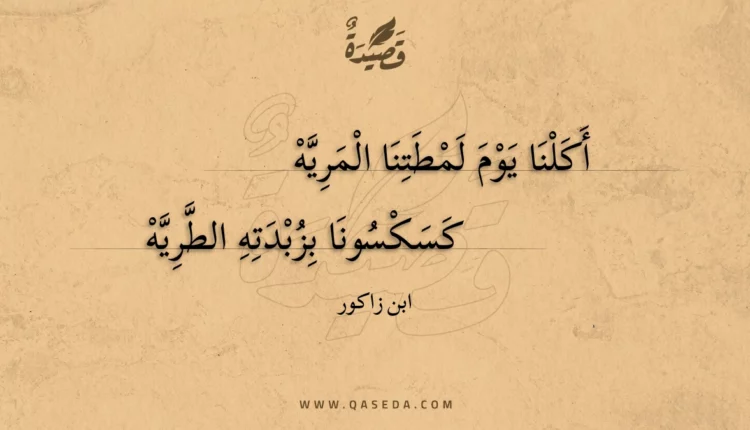 قَصِيدَةٌ
أَكَلْنَا يَوْمَ لَمْطَتِنَا الْمَرِيَّهْ
كَسَكْسُونَا بِزُبْدَتِهِ الطَّرِيَّهْ
ابن زاكور
WWW.QASEDA.COM